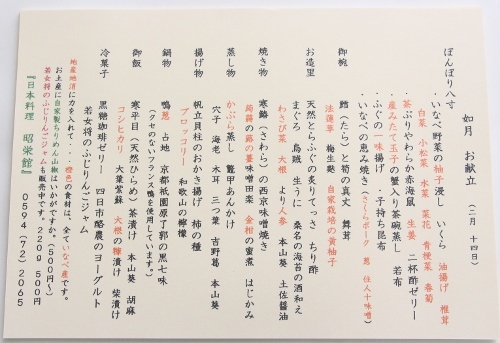 如月 お献立 (二月 十四日)
ぼんぼり八寸
・いなべ野菜の柚子浸し いくら 油揚げ 椎茸
白菜 小松菜 水菜 菜花 青梗菜 春菊
・茶ぶりやわらか赤海鼠 生姜 二杯酢ゼリー
・産みたて玉子の蟹入り茶碗蒸し 若布
・ふぐの一味揚げ ・子持ち昆布
・いなべの恵み焼き(さくらポーク 葱 住人十味噌)
御椀 鱈(たら)と筍の真丈 舞茸
法蓮草 梅生麩 自家栽培の黄柚子
お造里 天然とらふぐの炙りてっさ ちり酢
まぐろ 烏賊 生うに 桑名の海苔の酒和え
わさび菜 大根 より人参 本山葵 土佐醤油
焼き物 寒鰆(さわら)の西京味噌焼き
蒟蒻の蕗の薹味噌田楽 金柑の蜜煮 はじかみ
蒸し物 かぶら蒸し 鼈甲あんかけ
穴子 海老 木耳 三つ葉 吉野葛 本山葵
揚げ物 帆立貝柱のおかき揚げ 柿の種
ブロッコリー 和歌山の檸檬
鍋物 鴨葱 占地 京都祇園原了郭の黒七味
(クセのないフランス鴨を使用しています。)
御飯 寒平目(天然ひらめ)茶漬け 本山葵 胡麻
コシヒカリ 大葉紫蘇 大根の糠漬け 柴漬け
冷菓子 黒糖珈琲ゼリー 四日市酪農のヨーグルト
若女将のふじりんごジャム
地産地消に力を入れて・・・橙色の食材は、全ていなべ産です。
お土産に自家製ちりめん山椒はいかがですか。(500円〜)
若女将のふじりんごジャムも販売中です。220g 500円
『日本料理 昭栄館』 0594(72)2065